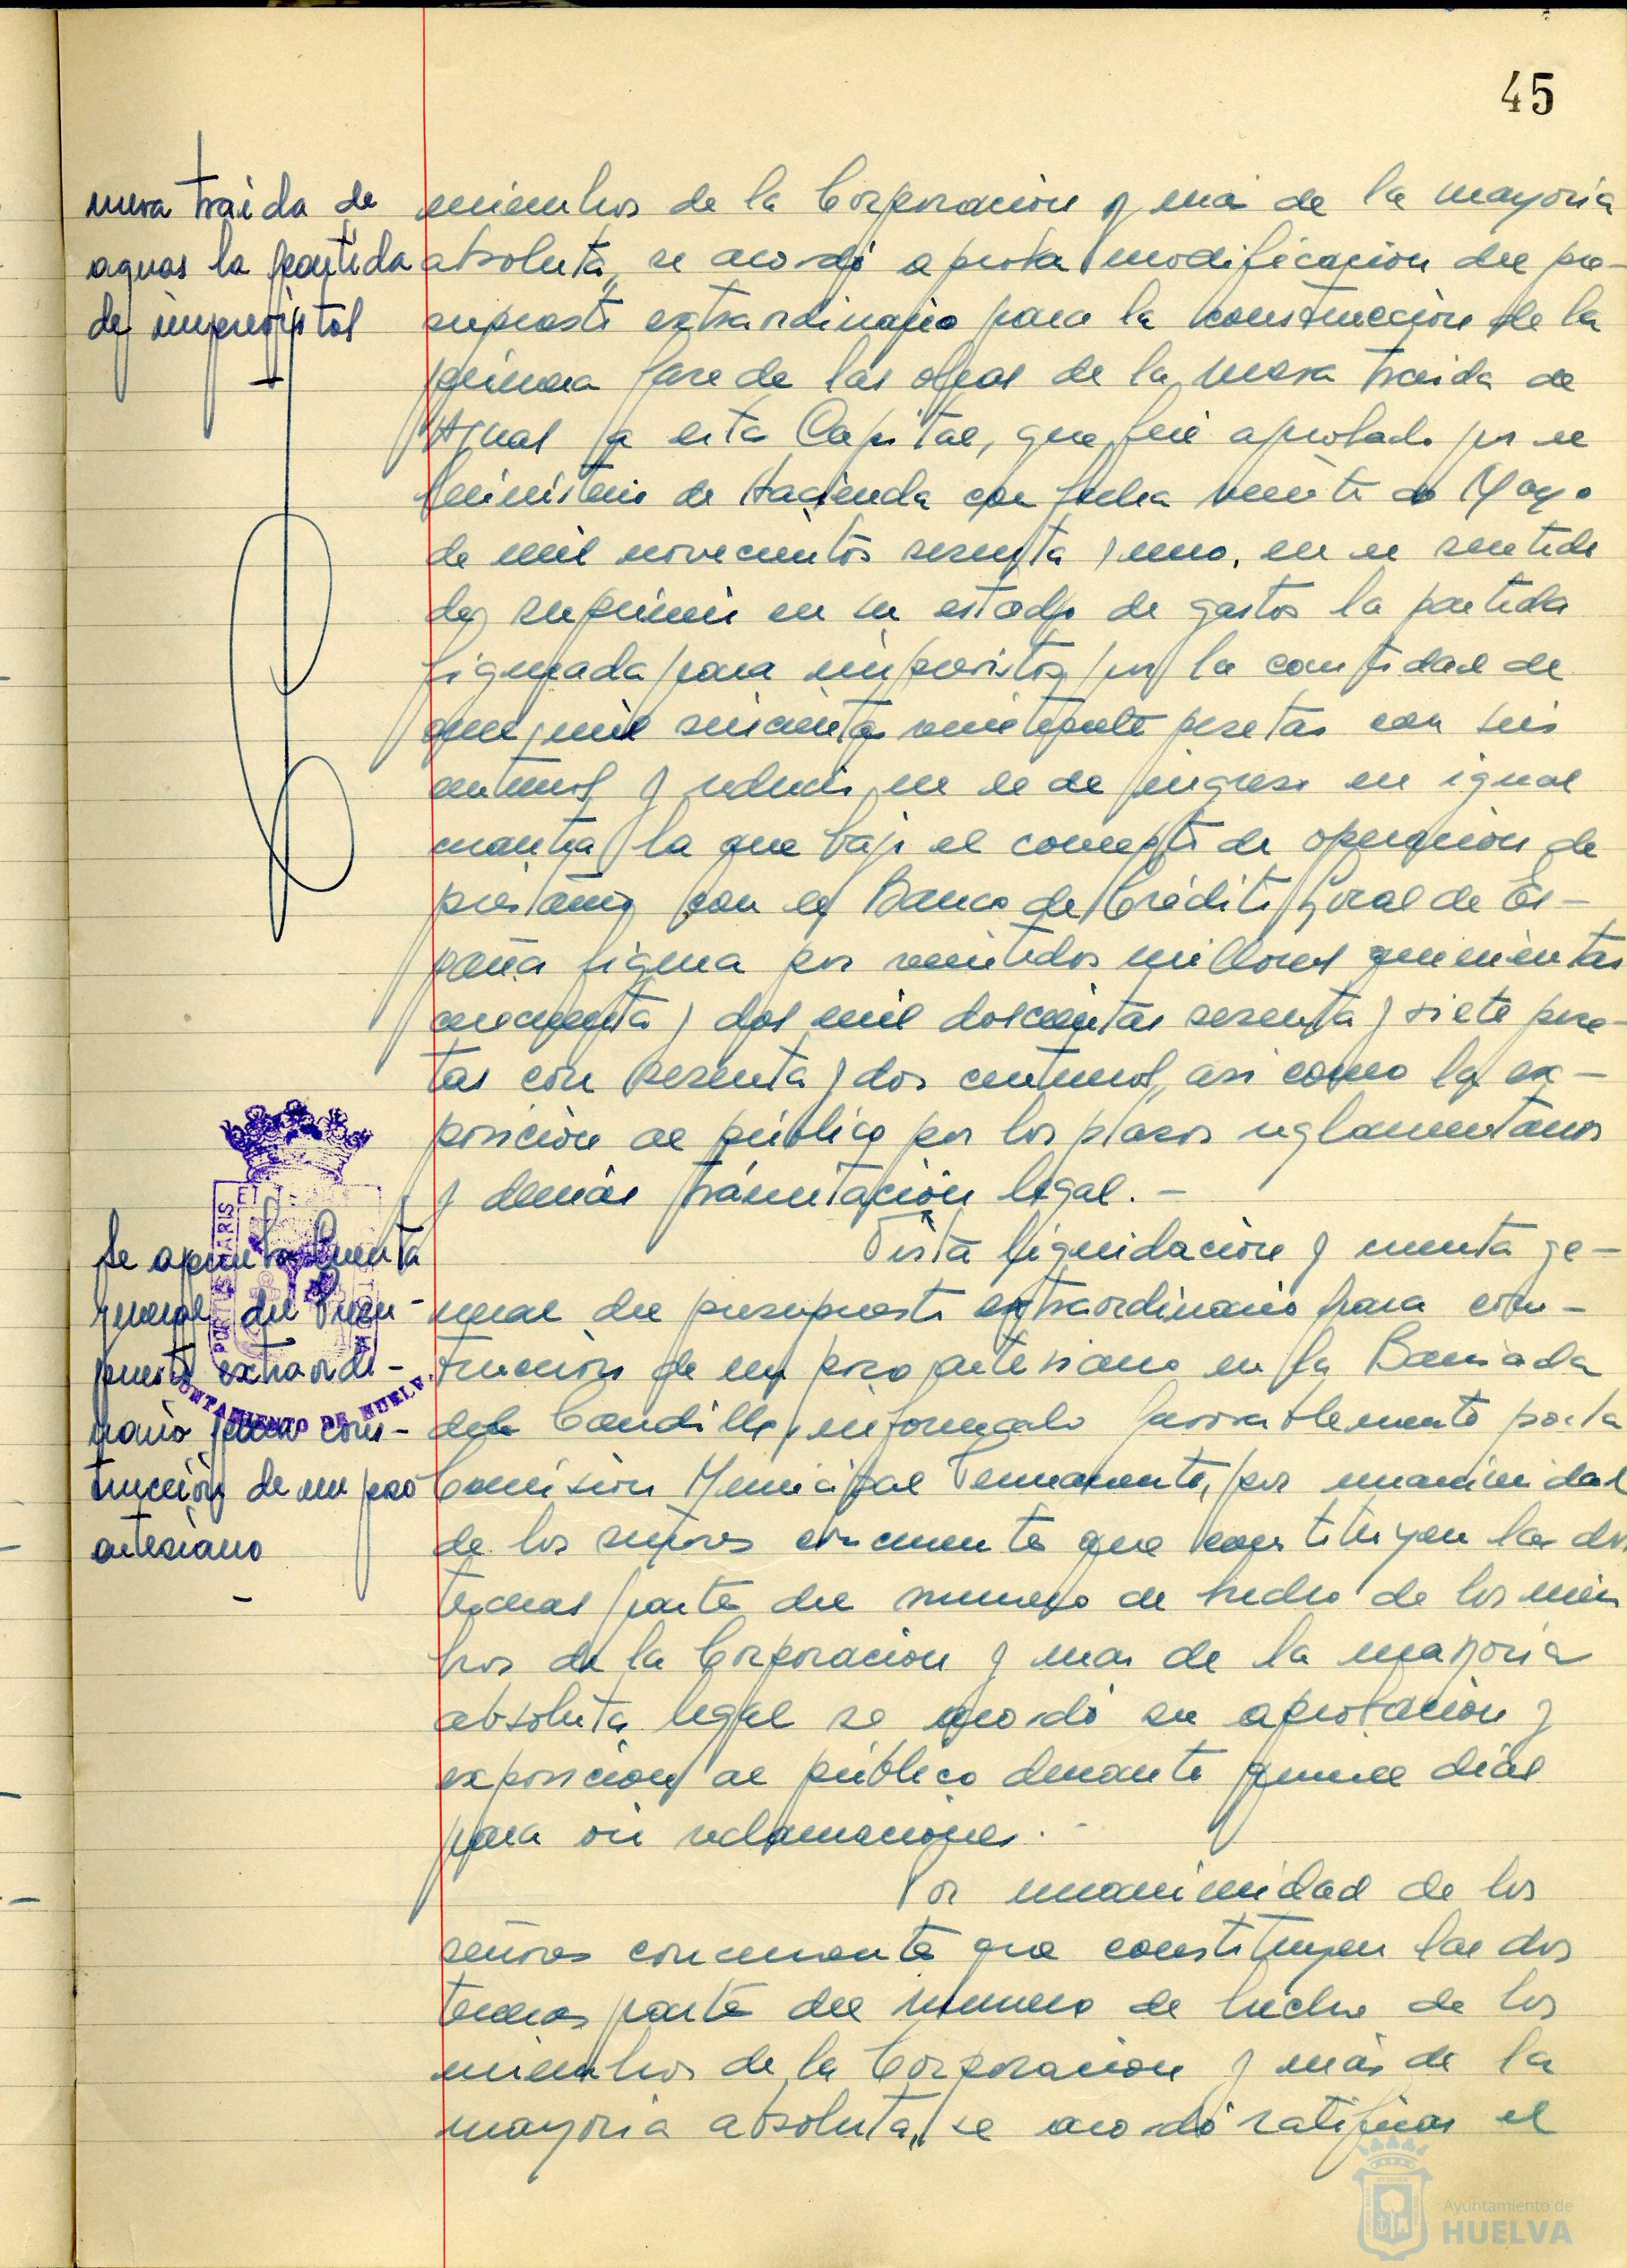 45
nueva traida de
aguas la partida
de imprevistos
miembros de la Corporación y más de la mayoria
absoluta, se acordó aprobar modificación del pre-
supuesto extraordinario para la construcción de la
primera fase de las obras de la nueva traida de
Aguas a esta Capital, que fué aprobado por el
Ministerio de Hacienda con fecha veinte de Mayo
de mil novecientos sesenta y uno, en el sentido
de suprimir en su estado de gastos la partida
figurada para imprevistos por la cantidad de
mil seiscientas pesetas con seis
centimos y reducir en el de ingreso en igual
cuantia la que bajo el concepto de operación de
préstamo con el Banco de Crédito Local de Es-
paña figura por veintidos millones quinientas
cincuenta y dos mil doscientas sesenta y siete pese-
tas con sesenta y dos centimos, asi como la ex-
posición al público por los plazos reglamentarios
y demás tramitación legal.-
Se aprueba Cuenta
general del Presu-
puesto extraordi-
nario para cons-
trucción de un pozo
artesiano
-
PORTUS MARIS ET
AYUNTAMIENTO DE HUELVA
Vista liquidación y cuenta ge-
neral del presupuesto extraordinario para cons-
trucción de un pozo artesiano en la Barriada
del Caudillo, informado favorablemente por la
Comisión Municipal Permanente, por unanimidad
de los señores concurrente que constituyen las dos
terceras parte del numero de hecho de los miem
bros de la Corporación y mas de la mayoria
absoluta legal se acordó su aprobación y
exposición al público durante quince dias
para oir reclamaciones.-
Por unanimidad de los
señores concurrente que constituyen las dos
terceras parte del numero de hecho de los
miembros de la Corporación y más de la
mayoria absoluta, se acordó ratificar el
Ayuntamiento de
HUELVA